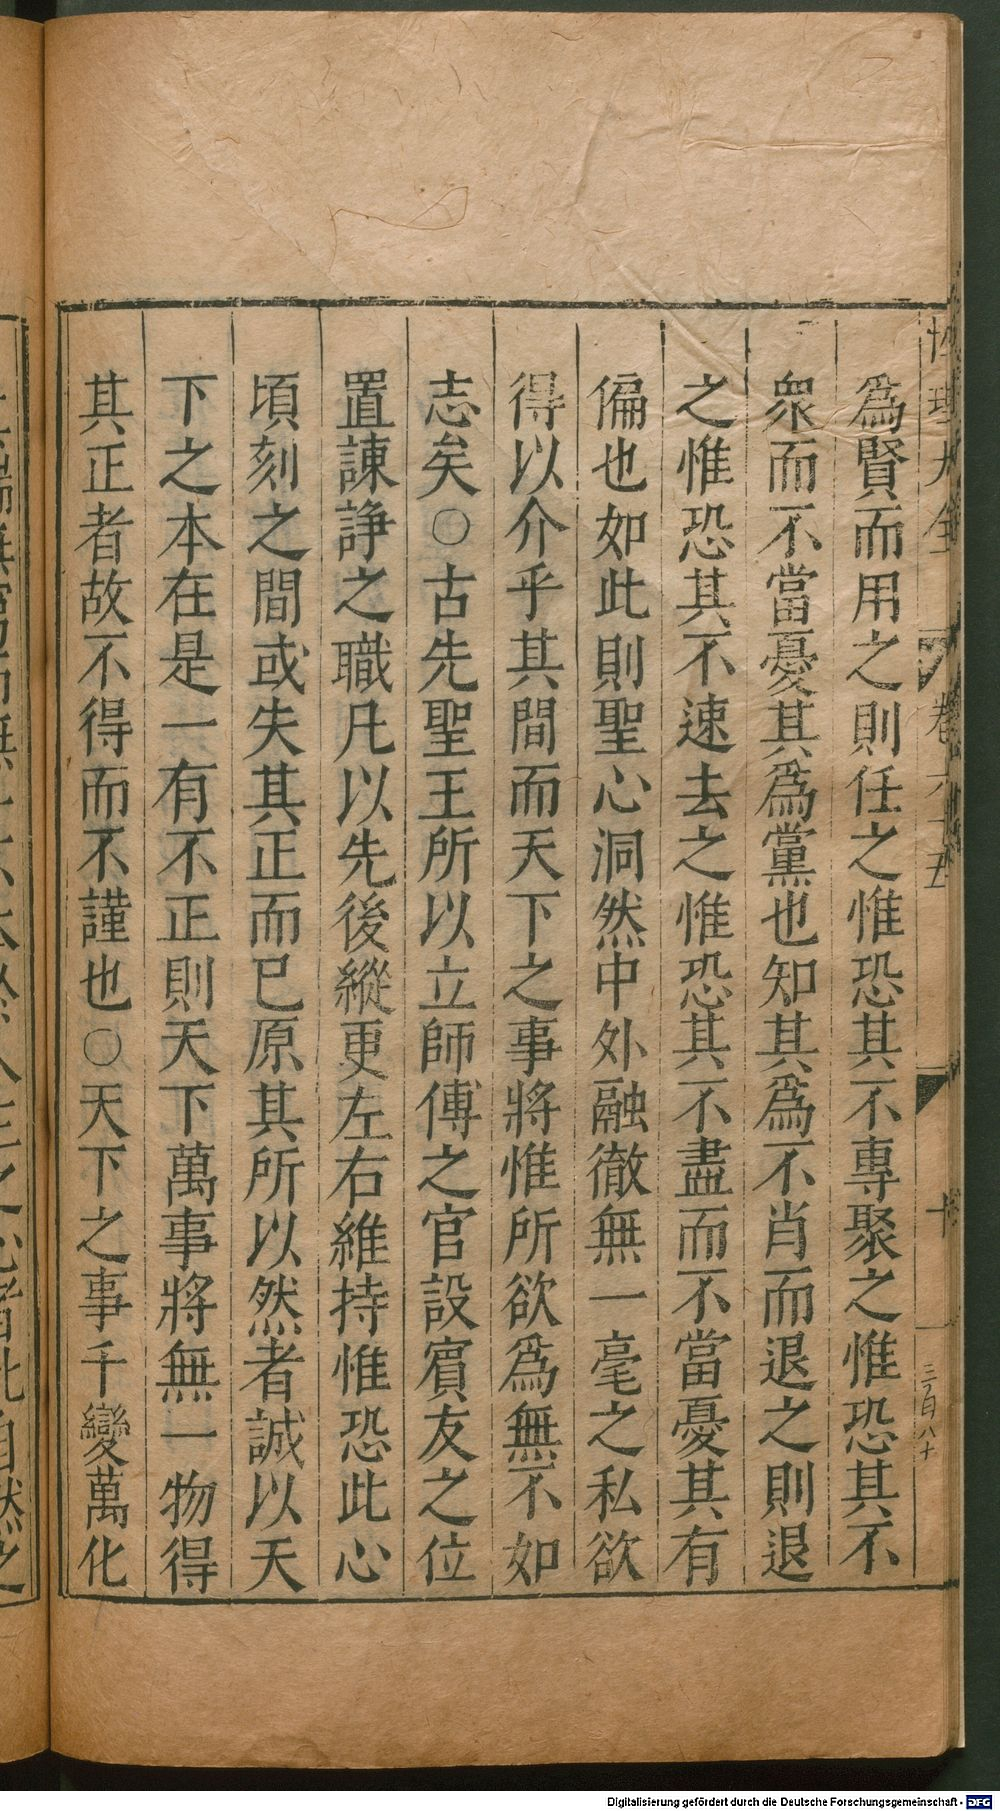 性理大全 卷六十五 十
三百八十
爲賢而用之則任之惟恐其不專聚之惟恐其不
衆而不當憂其爲黨也知其爲不肖而退之則退
之惟恐其不速去之惟恐其不盡而不當憂其有
偏也如此則聖心洞然中外融徹無一毫之私欲
得以介乎其間而天下之事將惟所欲爲無不如
志矣○古先聖王所以立師傅之官設賓友之位
置諫諍之職凡以先後縱更左右維持惟恐此心
頃刻之間或失其正而已原其所以然者誠以天
下之本在是一有不正則天下萬事將無一物得
其正者故不得而不謹也○天下之事千變萬化
Digitalisierung gefördert durch die Deutsche Forschungsgemeinschaft - DFG